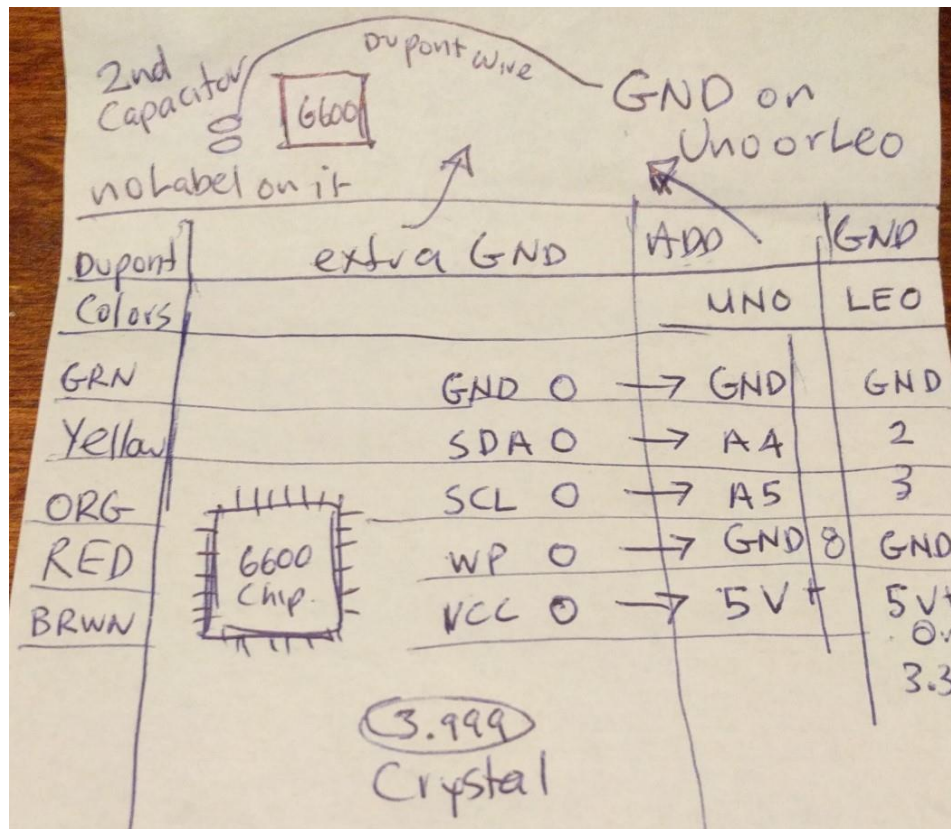 2nd Capacitor
Dupont wire
6600
GND on
Uno or Leo
no Label on it
Dupont extra GND ADD GND
Colors UNO LEO
GRN GND O → GND GND
Yellow SDA O → A4 2
ORG SCL O → A5 3
RED WP O → GND 8 GND
BRWN VCC O → 5V+ 5V+
6600
Chip.
Or
3.3
3.999
Crystal